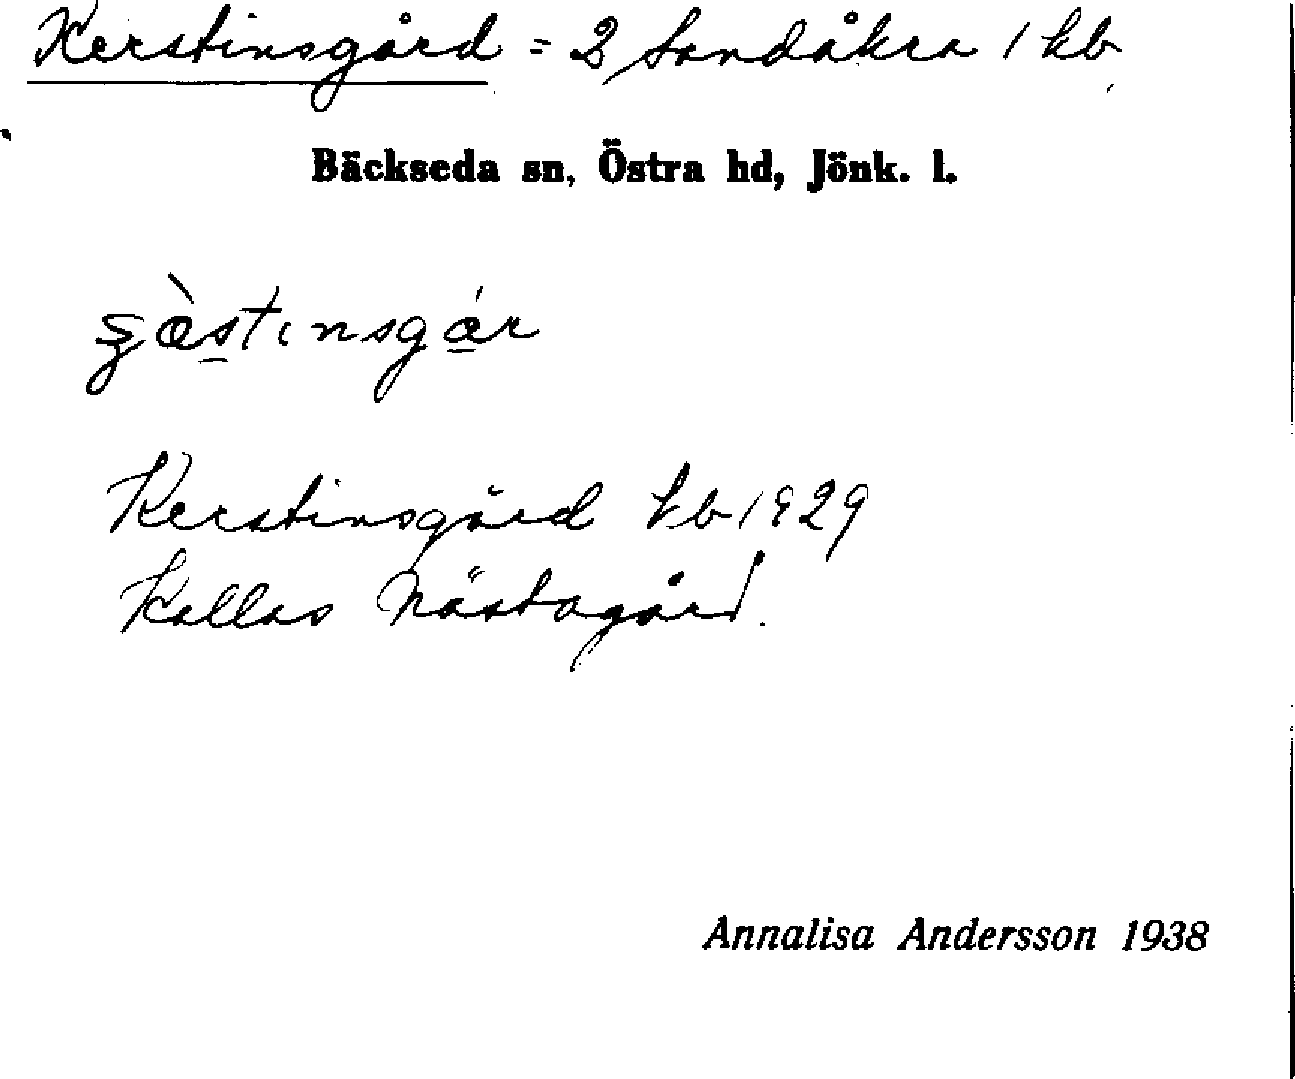 Kerstinsgård = 2 Sandåkra 1 kb
Bäckseda sn, Östra hd, Jönk. l.
Kerstinsgård kb 1929
Kallas Nästagård.
Annalisa Andersson 1938